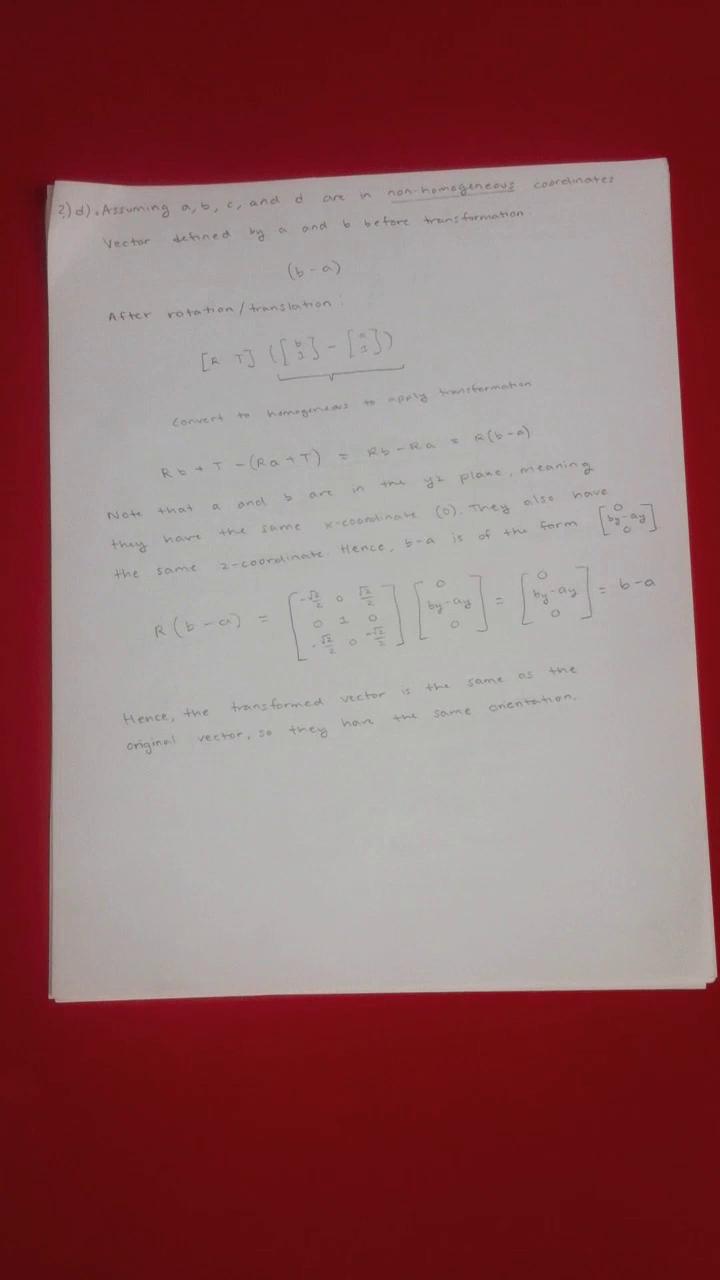 2) d). Assuming a, b, c, and d are in non-homogeneous coordinates
Vector defined by a and b before transformation
(b - a)
After rotation/translation:
[R T] ([b 1] - [a 1])
Convert to homogeneous to apply transformation
Rb + T - (Ra + T) = Rb - Ra = R(b-a)
Note that a and b are in the yz plane, meaning
they have the same x-coordinate (0). They also have
the same z-coordinate. Hence, b-a is of the form [0 by-ay 0]
R(b-a) = [-√2/2 0 √2/2 0 1 0 -√2/2 0 -√2/2] [0 by-ay 0] = [0 by-ay 0] = b-a
Hence, the transformed vector is the same as the
original vector, so they have the same orientation.